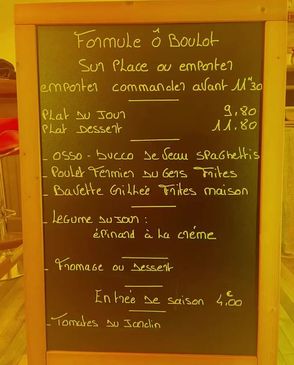 Formule ô Boulot
Sur Place ou emporter
emporter commander avant 11H30
Plat du Jour 9,80
Plat Dessert 11,80
- osso-bucco de veau spaghettis
- Poulet Fermier du Gers Frites
- Bavette Grillée Frites maison
- Légume du jour :
épinard à la crème
- Fromage ou Dessert
Entrée de saison 4,00€
- Tomates du Jardin